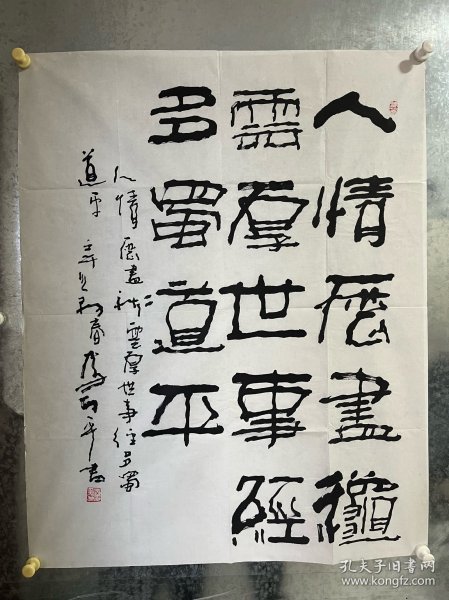 人情歷盡龝
雲厚世事經
多蜀道平
人情歷盡秋雲厚世事經多蜀
道平 辛丑初春 平書
孔夫子旧书网
www.kongfz.com